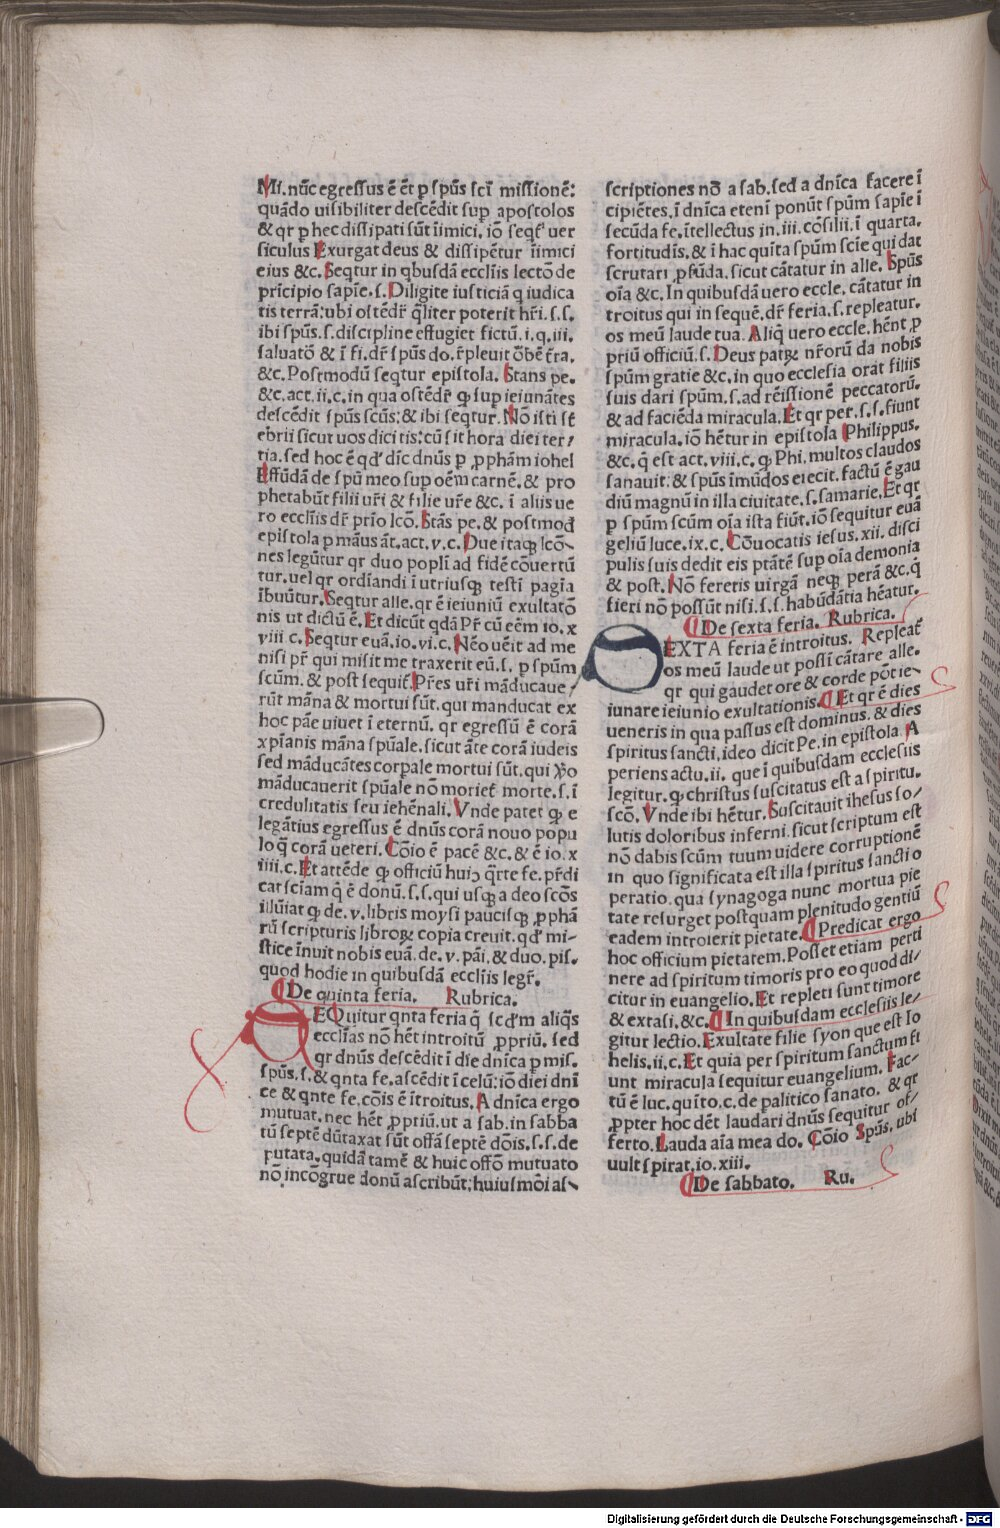 Mi. nūc egressus ē ēt p spūs scī missionē:
quādo uisibiliter descēdit sup apostolos
& qr p hec dissipati sūt iīmici. iō seqť uer
siculus Exurgat deus & dissipētur iīmici
eius &c. Seqtur in qbusdā ecclīis lectō de
prīcipio sapīe. s. Diligite iusticiā q iudica
tis terrā: ubi ostēdr̄ q̄liter poterit hr̄i. s. s.
ibi spūs. s. discipline effugiet fictū. i. q. iii.
saluatō & ī fi. dr̄ spūs do. r̄pleuit ōbē t̄ra.
&c. Postmodū seqtur epistola. Stans pe.
&c. act. ii. c. in qua ostēdr̄ ꝙ sup ieiunātes
descēdit spūs scūs: & ibi seqtur. Nō isti st
ebrii sicut uos dicitis: cū sit hora diei ter/
tia. sed hoc ē qď dīc dnūs p ꝓphām iohel
Effūdā de spū meo sup oēm carnē. & pro
phetabūt filii ur̄i & filie ur̄e &c. ī aliis ue
ro ecclīis dr̄ prīo lcō. Stās pe. & postmod
epistola p māus āt. act. v. c. Due itaqꝫ lcō-
nes legūtur qr duo popli ad fidē cōuertū
tur. uel qr ordīandi ī utriusqꝫ testī pagīa
ībuūtur. Seqtur alle. qr ē ieiuniū exultatō
nis ut dictū ē. Et dicūt qdā Pr̄ cū eēm io. x
viii c. Seqtur euā. io. vi. c. Nēo uēit ad me
nisi pr̄ qui misit me traxerit eū. s. p spūm
scūm. & post sequit̄. Pr̄es ur̄i māducaue/
rūt māna & mortui sūt. qui manducat ex
hoc pāe uiuet ī eternū. qr egressū ē corā
xpīanis māna spūale. sicut āte corā iudeis
sed māducātes corpale mortui sūt. qui xp̄o
māducauerit spūale nō moriet̄ morte. s. ī
credulitatis seu iehēnali. Vnde patet ꝙ e
legātius egressus ē dnūs corā nouo popu
lo q̄ corā ueteri. Cōio ē pacē &c. & ē io. x
iiii. c. Et attēde ꝙ officiū huiꝰ q̄rte fe. pr̄di
cat sciam q̄ ē donū. s. s. qui usqꝫ a deo scōs
illūiat ꝙ de. v. libris moysi paucisqꝫ ꝓphā
rū scripturis libroꝝ copia creuit. qď mi-
stice īnuit nobis euā. de. v. pāi. & duo. pis.
quod hodie in quibusdā ecclīis legr̄.
De quinta feria. Rubrica.
SEQuitur qnta feria q̄ scďm aliq̄s
ecclīas nō hēt introitū ꝓpriū. sed
qr dnūs descēdit ī die dnīca p mis.
spūs. s. & qnta fe. ascēdit ī celū: iō diei dnī
ce & qnte fe. cōis ē ītroitus. A dnīca ergo
mutuat. nec hēt ꝓpriū. ut a sab. in sabba
tū septē dūtaxat sūt offā septē dōis. s. s. de
putata. quidā tamē & huic offō mutuato
nō incōgrue donū ascribūt: huiusmōi as-
scriptiones nō a sab. sed a dnīca facere ī
cipiētes. ī dnīca etenī ponūt spūm sapīe ī
secūda fe. ītellectus in. iii. cōsilii. ī quarta.
fortitudīs. & ī hac quīta spūm scīe qui dat
scrutari ꝓfūda. sicut cātatur in alle. Spūs
oīa &c. In quibusdā uero eccle. cātatur in
troitus qui in sequē. dr̄ feria. s. repleatur.
os meū laude tua. Aliq̄ uero eccle. hēnt ꝓ
priū officiū. s. Deus patꝝ nr̄orū da nobis
spūm gratie &c. in quo ecclesia orat filiis
suis dari spūm. s. ad rēissionē peccatorū.
& ad faciēda miracula. Et qr per. s. s. fiunt
miracula. iō hētur in epistola Philippus.
&c. q̄ est act. viii. c. ꝙ Phi. multos claudos
sanauit: & spūs imūdos eiecit. factū ē gau
diū magnū in illa ciuitate. s. samarie. Et qr
p spūm scūm oīa ista fiūt. iō sequitur euā
geliū luce. ix. c. Cōuocatis iesus. xii. disci
pulis suis dedit eis ptātē sup oīa demonia
& post. Nō feretis uirgā neqꝫ perā &c. q̄
fieri nō possūt nisi. s. s. habūdātia hēatur.
De sexta feria. Rubrica.
SEXTA feria ē introitus. Repleat̄
os meū laude ut possī cātare alle.
qr qui gaudet ore & corde pōt ie-
iunare ieiunio exultationis. Et qr ē dies
ueneris in qua passus est dominus. & dies
spiritus sancti, ideo dicit Pe. in epistola. A
periens actu. ii. que ī quibusdam ecclesiis
legitur. ꝙ christus suscitatus est a spiritu.
scō. Vnde ibi hētur. Suscitauit ihesus so/
lutis doloribus inferni. sicut scriptum est
nō dabis scūm tuum uidere corruptionē
in quo significata est illa spiritus sancti o
peratio. qua synagoga nunc mortua pie
tate resurget postquam plenitudo gentiū
eadem introierit pietate. Predicat ergo
hoc officium pietatem. Posset etiam perti
nere ad spiritum timoris pro eo quod di/
citur in euangelio. Et repleti sunt timore
& extasi. &c. In quibusdam ecclesiis le/
gitur lectio. Exultate filie syon que est Io
helis. ii. c. Et quia per spiritum sanctum fi
unt miracula sequitur euangelium. Fac-
tū ē luc. quīto. c. de palitico sanato. & qr
ꝓpter hoc dēt laudari dnūs sequitur of/
ferto. Lauda aīa mea do. Cōio Spūs. ubi
uult spirat. io. xiii.
De sabbato. Ru.
Digitalisierung gefördert durch die Deutsche Forschungsgemeinschaft - DFG